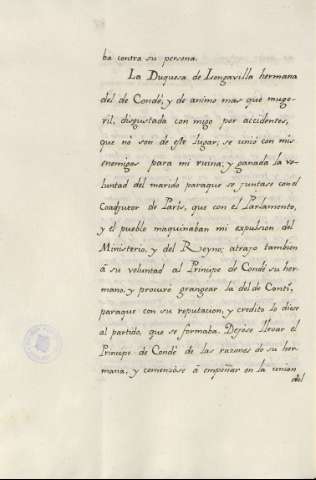 ba contra su persona.
La Duquesa de Longavilla hermana
del de Condé, y de animo mas que muge-
ril, disgustada con migo por accidentes,
que no son de este lugar, se unió con mis
enemigos para mi ruina; y ganada la vo-
luntad del marido paraque se juntase con el
Coadjutor de París, que con el Parlamento,
y el pueblo maquinaban mi expulsion del
Ministerio, y del Reyno; atrajo tambien
á su voluntad al Principe de Condé su her-
mano, y procuró grangear la del de Contí,
paraque con su reputacion, y credito lo diese
al partido, que se formaba. Dejóse llevar el
Principe de Condé de las razones de su her-
mana, y comenzóse á empeñar en la union
del